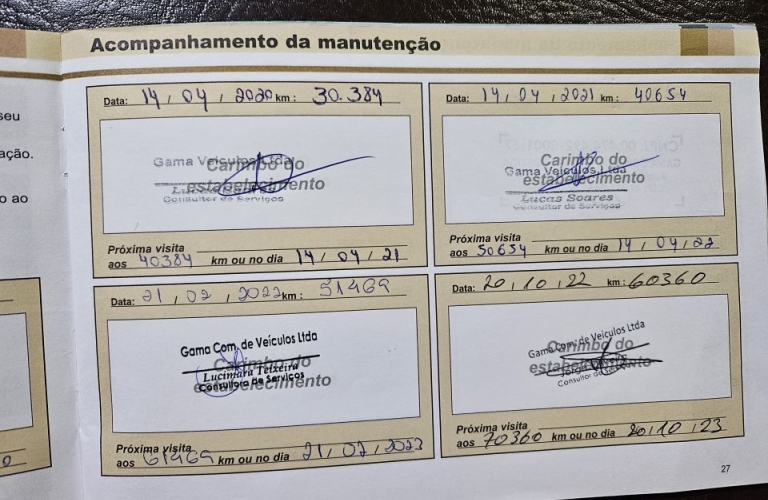 Acompanhamento da manutenção
seu
ação.
o ao
Data: 14 / 04 / 2020 km: 30.384
Gama Veículos Ltda
Carimbo do
estabelecimento
Consultor de Serviços
Próxima visita
aos 40384 km ou no dia 14 / 04 / 21
Data: 14 / 04 / 2021 km: 40654
Carimbo do
Gama Veículos Ltda
estabelecimento
Lucas Soares
Consultor de Serviços
Próxima visita
aos 50654 km ou no dia 14 / 04 / 22
Data: 21 / 02 / 2022 km: 51469
Gama Com. de Veículos Ltda
Carimbo do
Lucimara Teixeira
Consultora de Serviços
estabelecimento
Próxima visita
aos 61469 km ou no dia 21 / 02 / 2023
Data: 20 / 10 / 22 km: 60360
Gama Com. de Veículos Ltda
Carimbo do
estabelecimento
Consultor de Serviços
Próxima visita
aos 70360 km ou no dia 20 / 10 / 23
27